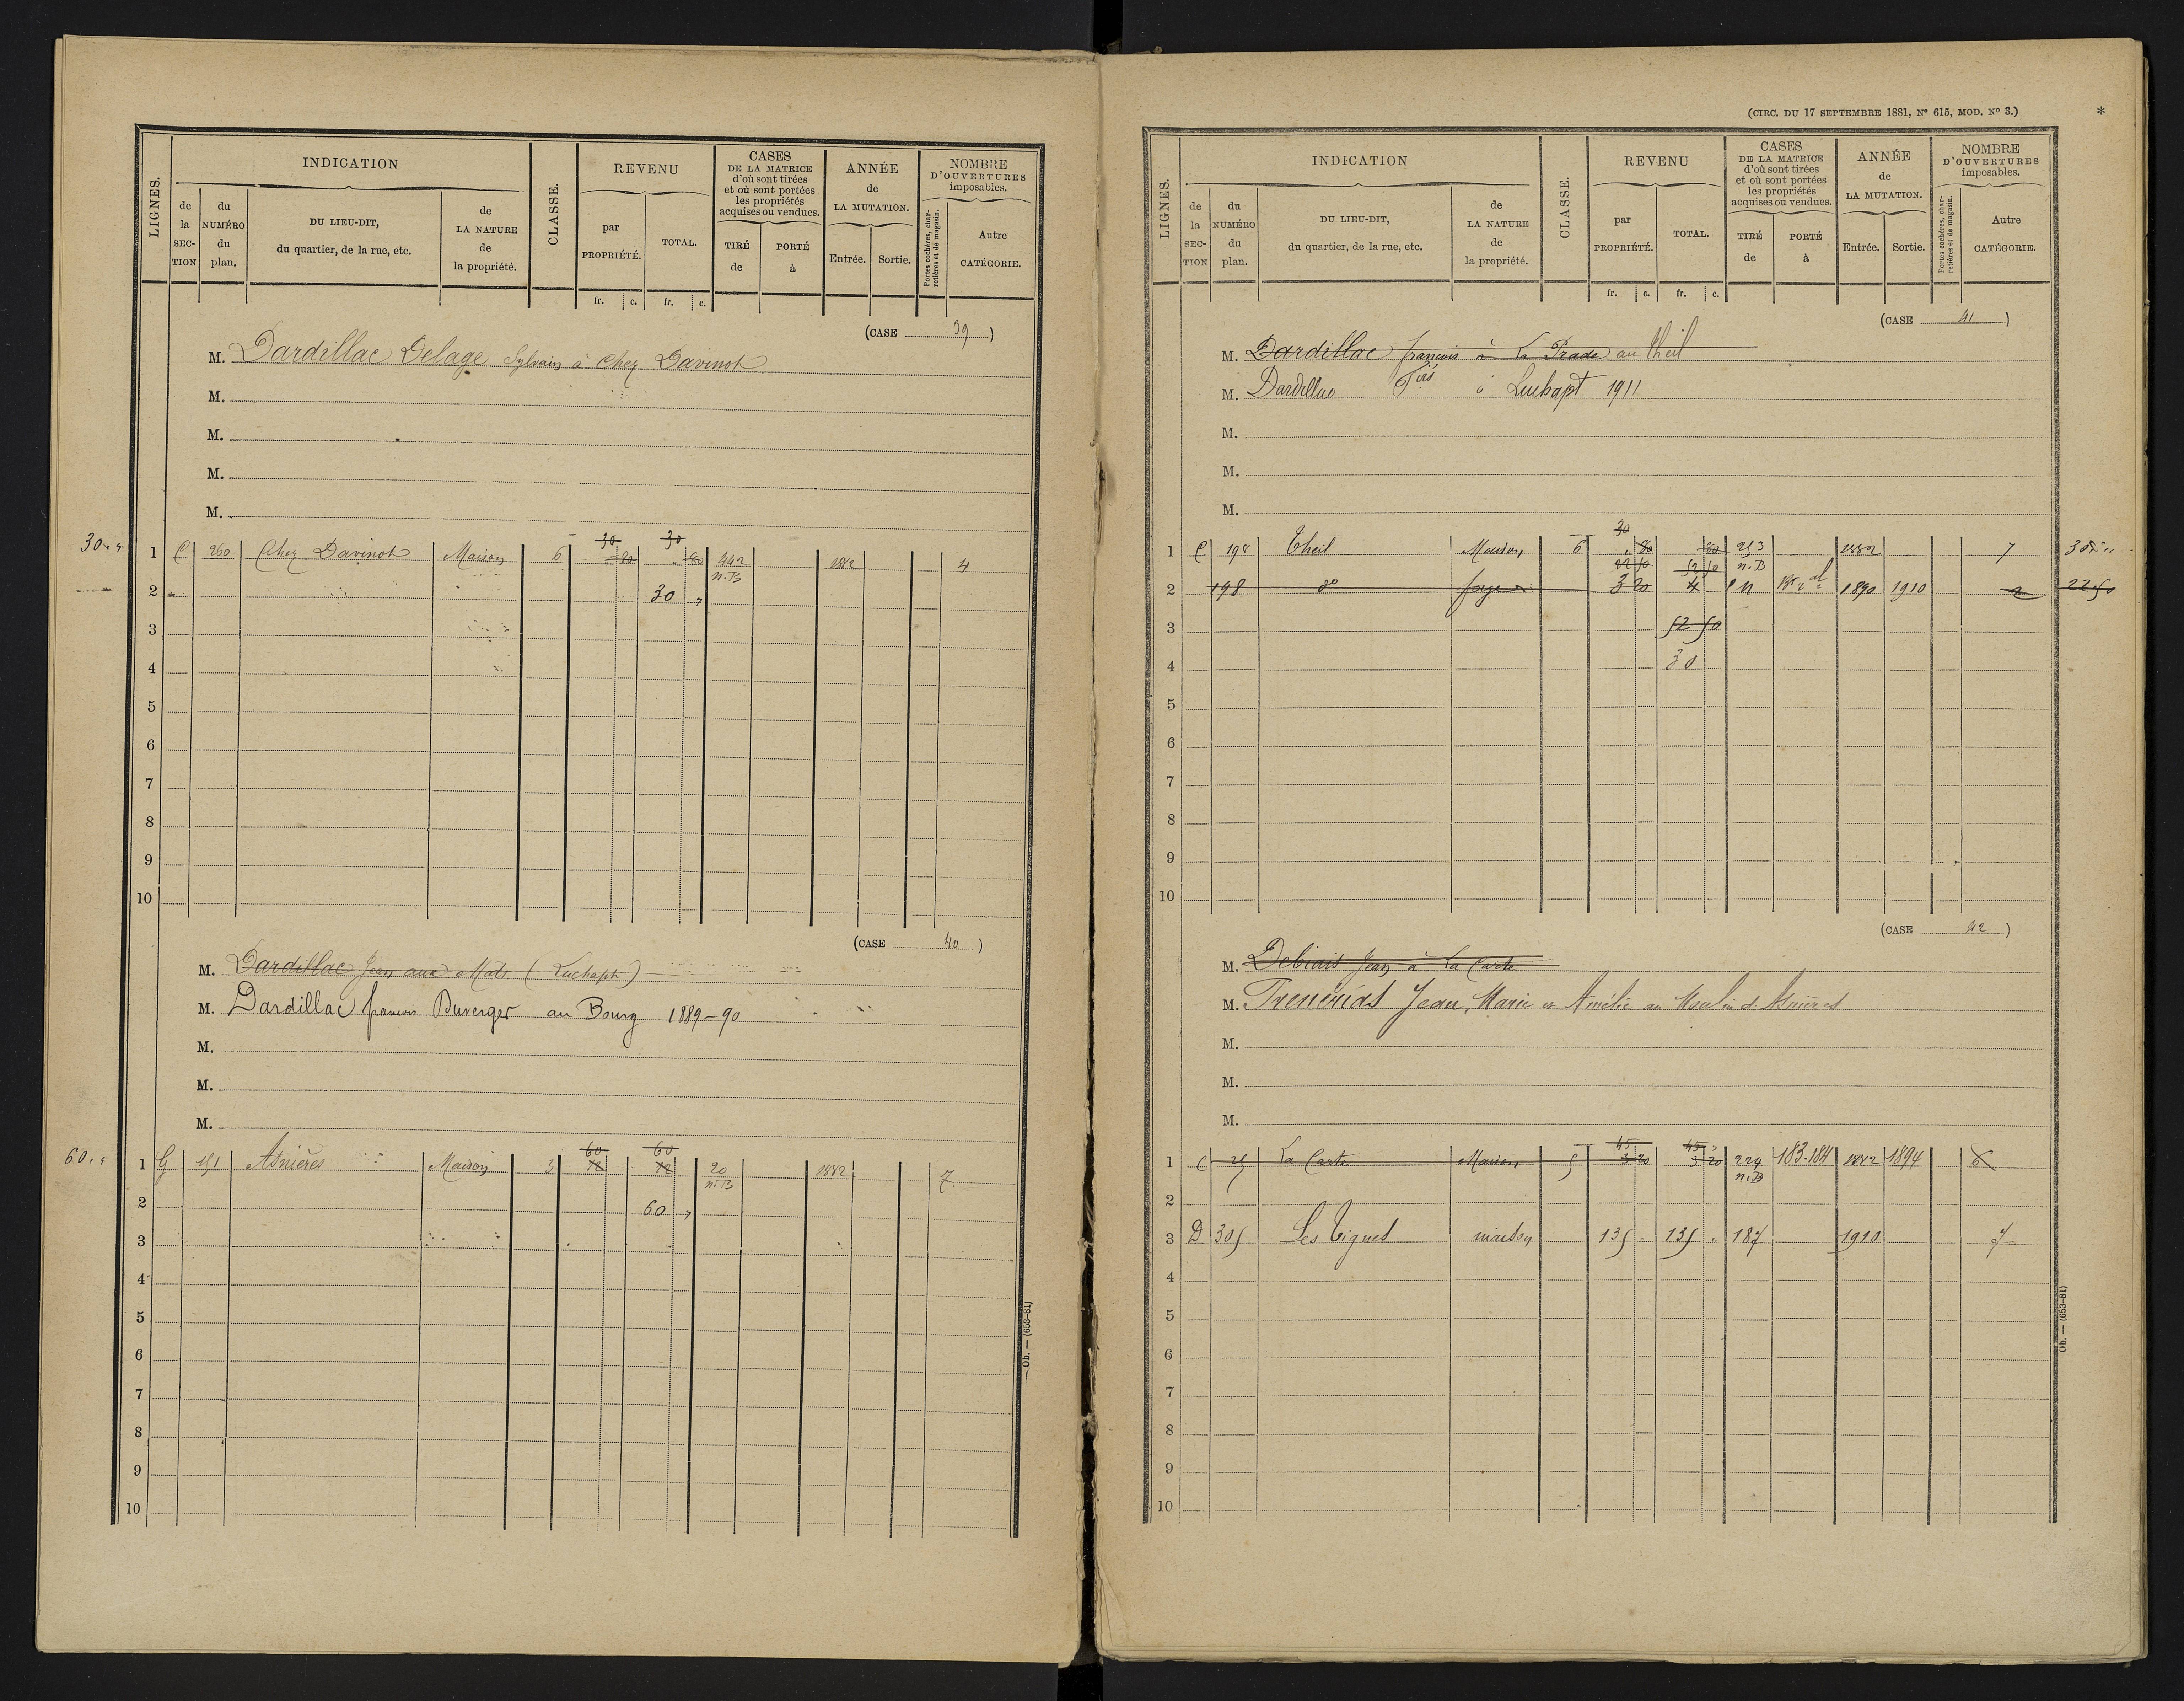 LIGNES.
INDICATION
de la SECTION
du NUMÉRO du plan.
DU LIEU-DIT, du quartier, de la rue, etc.
de LA NATURE de la propriété.
CLASSE.
REVENU
par PROPRIÉTÉ.
TOTAL.
fr. c. fr. c.
CASES DE LA MATRICE d'où sont tirées et où sont portées les propriétés acquises ou vendues.
TIRÉ de
PORTÉ à
ANNÉE de LA MUTATION.
Entrée. Sortie.
NOMBRE D'OUVERTURES imposables.
Portes cochères, charretières et de magasin.
Autre CATÉGORIE.
(CASE 39)
M. Dardillac Delage Sylvain à Chez Davinot
M.
M.
M.
M.
30 30
30 " " 1 C 260 Chez Davinot Maison 6 " 80 " 80 442 1882 4
n.B
2 30 "
3
4
5
6
7
8
9
10
(CASE 40)
M. Dardillac Jean aux Mats (Luchapt)
M. Dardillac françois Duverger au Bourg 1889-90
M.
M.
M.
60 60
60 " " 1 G 151 Asnières Maison 3 12 12 20 1882 7
n.B
2 60 "
3
4
5
6
7
8
9
10
Ob. — (653-81)
(CIRC. DU 17 SEPTEMBRE 1881, N° 615, MOD. N° 3.) *
LIGNES.
INDICATION
de la SECTION
du NUMÉRO du plan.
DU LIEU-DIT, du quartier, de la rue, etc.
de LA NATURE de la propriété.
CLASSE.
REVENU
par PROPRIÉTÉ.
TOTAL.
fr. c. fr. c.
CASES DE LA MATRICE d'où sont tirées et où sont portées les propriétés acquises ou vendues.
TIRÉ de
PORTÉ à
ANNÉE de LA MUTATION.
Entrée. Sortie.
NOMBRE D'OUVERTURES imposables.
Portes cochères, charretières et de magasin.
Autre CATÉGORIE.
(CASE 41)
M. Dardillac françois à La Prade au theil
M. Dardillac Fois à Luchapt 1911
M.
M.
M.
30
1 C 198 Theil Maison 6 " 80 80 253 1882 7 30
22 50 52 50 n.B
2 198 do forge 3 20 4 1890 1910 2 22 50
3 52 50
4 30
5
6
7
8
9
10
(CASE 42)
M. Debiais Jean à La Carte
M. Jean, Marie et Amélie au Moulin d'Asnières
M.
M.
M.
45 45 "
1 C 25 La Carte Maison 5 3 20 3 20 224 183-184 1882 1894 6
n.B
2
3 D 305 Les Tignes maison 135 " 135 " 187 1910 7
4
5
6
7
8
9
10
Ob. — (653-81)